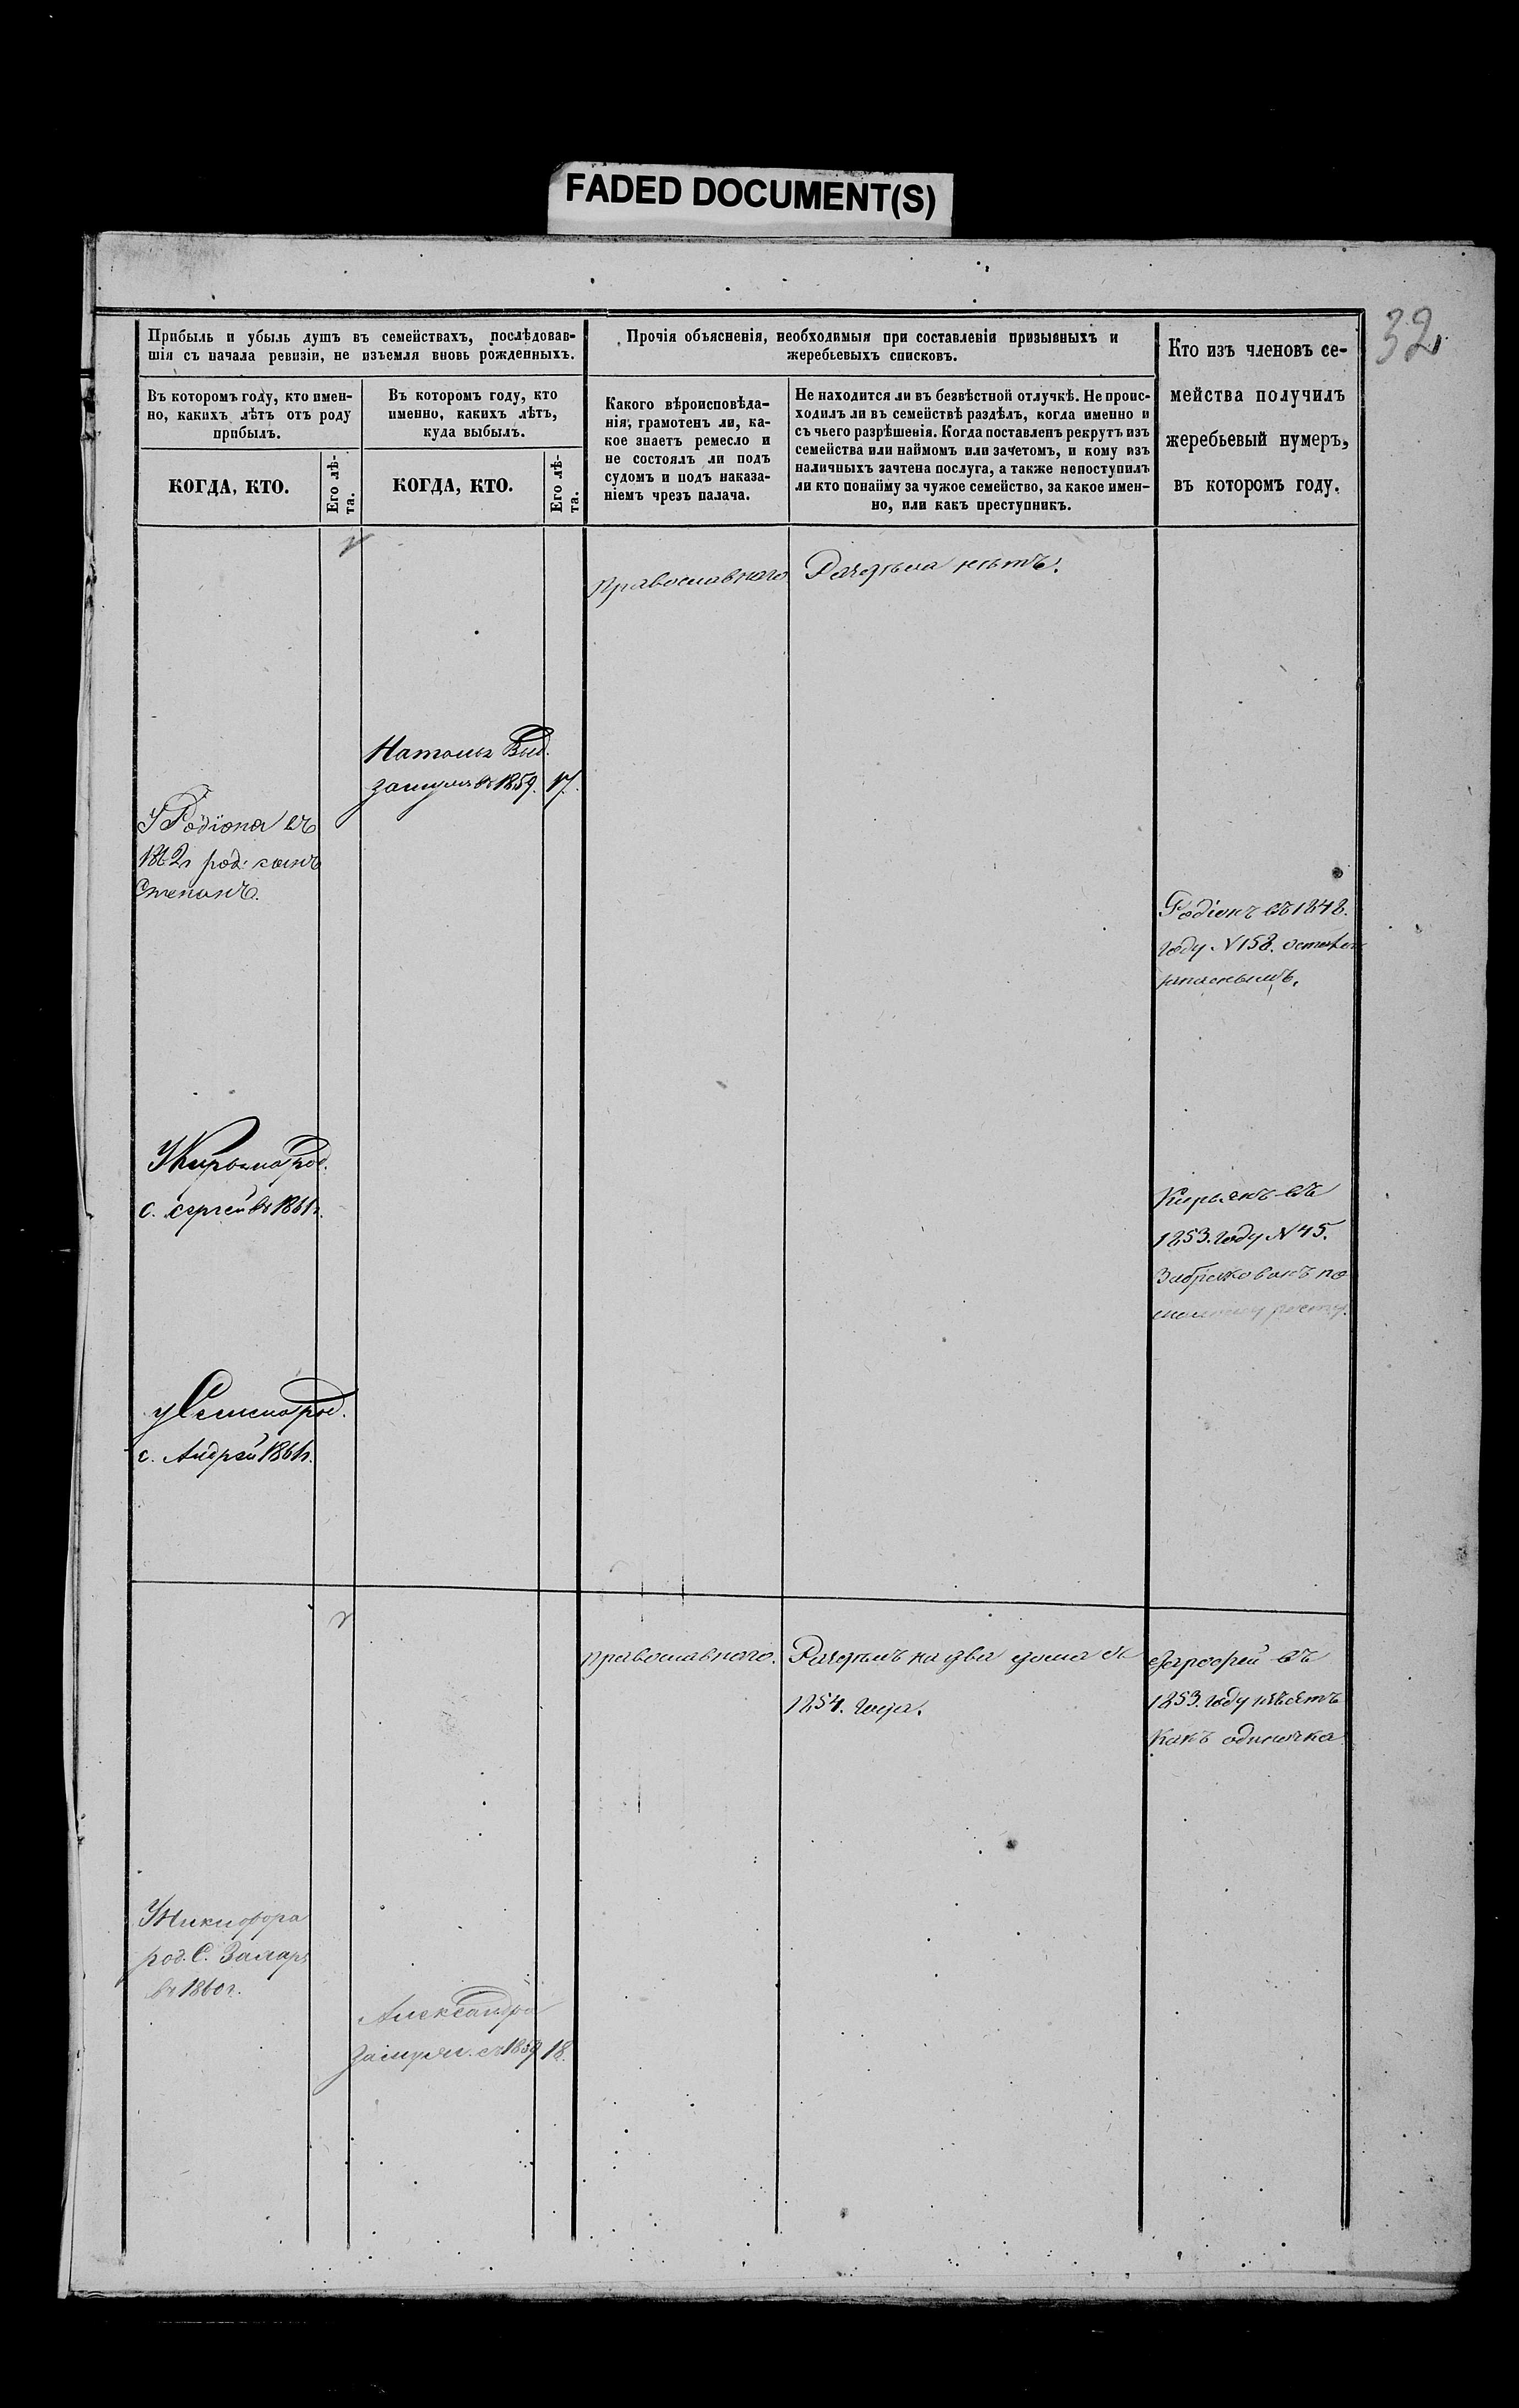 FADED DOCUMENT(S)
32
Прибыль и убыль душъ въ семействахъ, послѣдовав-
шія съ начала ревизіи, не изъемля вновь рожденныхъ.
Въ которомъ году, кто имен-
но, какихъ лѣтъ отъ роду
прибылъ.
КОГДА, КТО.
Его лѣ-
та.
Въ которомъ году, кто
именно, какихъ лѣтъ,
куда выбылъ.
КОГДА, КТО.
Его лѣ-
та.
Прочія объясненія, необходимыя при составленіи призывныхъ и
жеребьевыхъ списковъ.
Какого вѣроисповѣда-
нія, грамотенъ ли, ка-
кое знаетъ ремесло и
не состоялъ ли подъ
судомъ и подъ наказа-
ніемъ чрезъ палача.
Не находится ли въ безвѣстной отлучкѣ. Не проис-
ходилъ ли въ семействѣ раздѣлъ, когда именно и
съ чьего разрѣшенія. Когда поставленъ рекрутъ изъ
семейства или наймомъ или зачетомъ, и кому изъ
наличныхъ зачтена послуга, а также непоступилъ
ли кто понайму за чужое семейство, за какое имен-
но, или какъ преступникъ.
Кто изъ членовъ се-
мейства получилъ
жеребьевый нумеръ,
въ которомъ году.
Православнаго. Раздѣла нѣтъ.
Наталья Выд.
замужъ въ 1859. 17.
У Родіона въ
1862 г род: сынъ
Степанъ.
Родіонъ въ 1848.
году. N 158. остав
У Кирьяна род.
с. Сергей въ 1861 г.
Кирьянъ въ
1853. году N 45.
Забракованъ по
малому росту.
у Семена род.
с. Андрей 1861 г.
Православнаго. Раздѣлъ на два дома въ
1854. года.
въ
1853. году
какъ одиночка
У Никифора
род. С. Захаръ
въ 1860 г.
Александра
замуж. въ 1859 18.